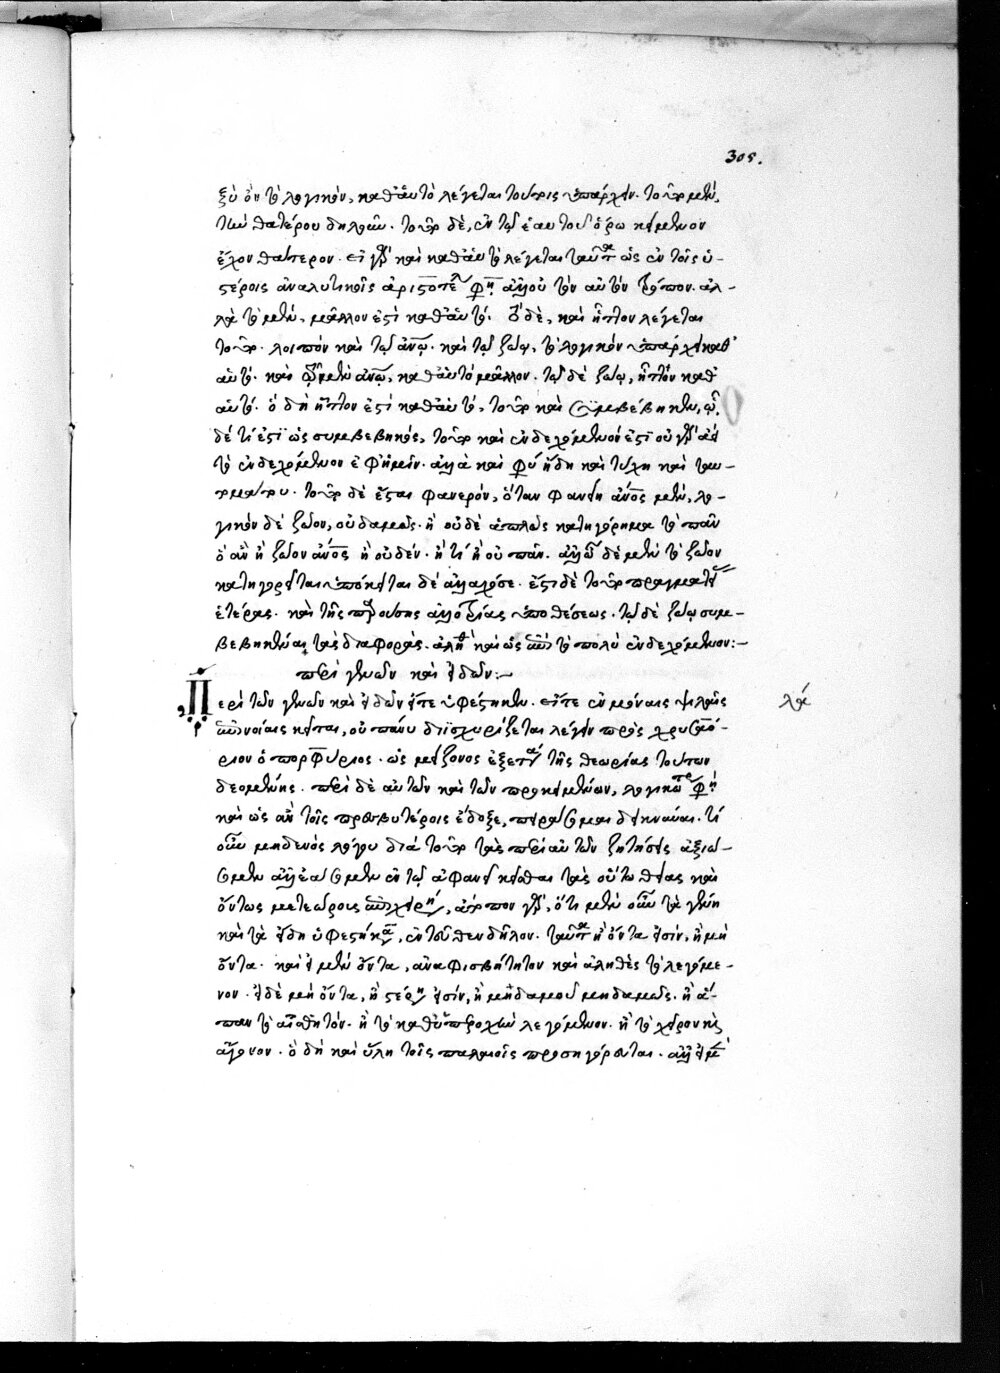 305.
ξὺ ὂν τὸ λογικόν, καθ' αὑτὸ λέγεται τούτοις ὑπάρχειν. τοῦτο μὲν,
τὴν θατέρου δηλοῦν. τοῦτο δὲ, ἐν τῷ ἑαυτοῦ ὅρῳ κείμενον
ἔχον θάτερον. εἰ γὰρ καὶ καθ' αὑτὸ λέγεται ταῦτα ὡς ἐν τοῖς ὑ-
στέροις ἀναλυτικοῖς ἀριστοτέλης φησὶν ἀλλ' οὐ τὸν αὐτὸν τρόπον. ἀλ-
λὰ τὸ μὲν, μᾶλλον ἐστὶ καθ' αὑτό. τὸ δὲ, καὶ ἧττον λέγεται
τοῦτο. λοιπὸν καὶ τῷ ἀνθρώπῳ. καὶ τῷ ζώῳ, τὸ λογικὸν ὑπάρχει καθ'
αὑτό. καὶ τῷ μὲν ἀνθρώπῳ, καθ' αὑτὸ μᾶλλον. τῷ δὲ ζώῳ, ἧττον καθ'
αὑτό. ὃ δὴ ἧττον ἐστὶ καθ' αὑτό, τοῦτο καὶ συμβέβηκεν,
δέ τί ἐστι ὡς συμβεβηκός, τοῦτο καὶ ἐνδεχόμενον ἐστὶ οὐ γὰρ ἀεὶ
τὸ ἐνδεχόμενον ἐφ' ἡμῖν. ἀλλὰ καὶ φύσει ἤδη καὶ τύχη καὶ ταυ-
τομάτου. τοῦτο δὲ ἔσται φανερόν, ὅταν φανείη ἄνθρωπος μὲν, λο-
γικὸν δὲ ζῶον, οὐδαμῶς. ἢ οὐδὲ ἁπλῶς κατηγόρημα τὸ πᾶν
ὃ ἂν ἢ ζῶον ἄνθρωπος ἢ οὐδέν. ἢ τὶ ἢ οὐ πᾶν. ἀλλὰ δὲ μὲν τὸ ζῶον
κατηγορεῖται ὑπόκειται δὲ ἀλλαχόσε. ἔστι δὲ τοῦτο πραγματείας
ἑτέρας. καὶ τῆς παρούσης ἀλλοτρίας ὑποθέσεως. τῷ δὲ ζώῳ συμ-
βεβηκέναι τὰς διαφοράς. ἀληθὲς καὶ ὡς ἐπὶ τὸ πολὺ ἐνδεχόμενον:-
περὶ γενῶν καὶ εἰδῶν:-
Περὶ τῶν γενῶν καὶ εἰδῶν εἴτε ὑφέστηκεν. εἴτε ἐν μόναις ψιλαῖς
λά
ἐπινοίαις κεῖται, οὐ πάνυ διϊσχυρίζεται λέγειν πρὸς χρυσαό-
ριον ὁ πορφύριος. ὡς μείζονος ἐξετάσεως τῆς θεωρίας τούτων
δεομένης. περὶ δὲ αὐτῶν καὶ τῶν προκειμένων, λογικώτερον φησὶ
καὶ ὡς ἂν τοῖς πρεσβυτέροις ἔδοξε, πειράσομαι δεικνύναι. τί
οὖν μηδενὸς λόγου διὰ τοῦτο τὰς περὶ αὐτῶν ζητήσεις ἀξιώ-
σομεν ἀλλ' ἐάσομεν ἐν τῷ ἀφανεῖ κεῖσθαι τὰς οὕτω θείας καὶ
ὄντως μετεώρους ἐπιχειρήσεις, ἄτοπον γὰρ, ὅτι μὲν οὖν τὰ γένη
καὶ τὰ εἴδη ὑφεστήκασι, ἐντεῦθεν δῆλον. ταῦτα ἢ ὄντα εἰσίν, ἢ μὴ
ὄντα. καὶ εἰ μὲν ὄντα, ἀναμφισβήτητον καὶ ἀληθὲς τὸ λεγόμε-
νον. εἰ δὲ μὴ ὄντα, ἢ στέρησις εἰσίν, ἢ μηδαμοῦ μηδαμῶς. ἢ ἅ-
παν τὸ αἰσθητόν. ἢ τὸ καθ' ὑπεροχὴν λεγόμενον. ἢ τὸ χεῖρον κὶς
ἄγονον. ὃ δὴ καὶ ὕλη τοῖς παλαιοῖς προσηγόρευται. ἀλλ' εἰ μὲν